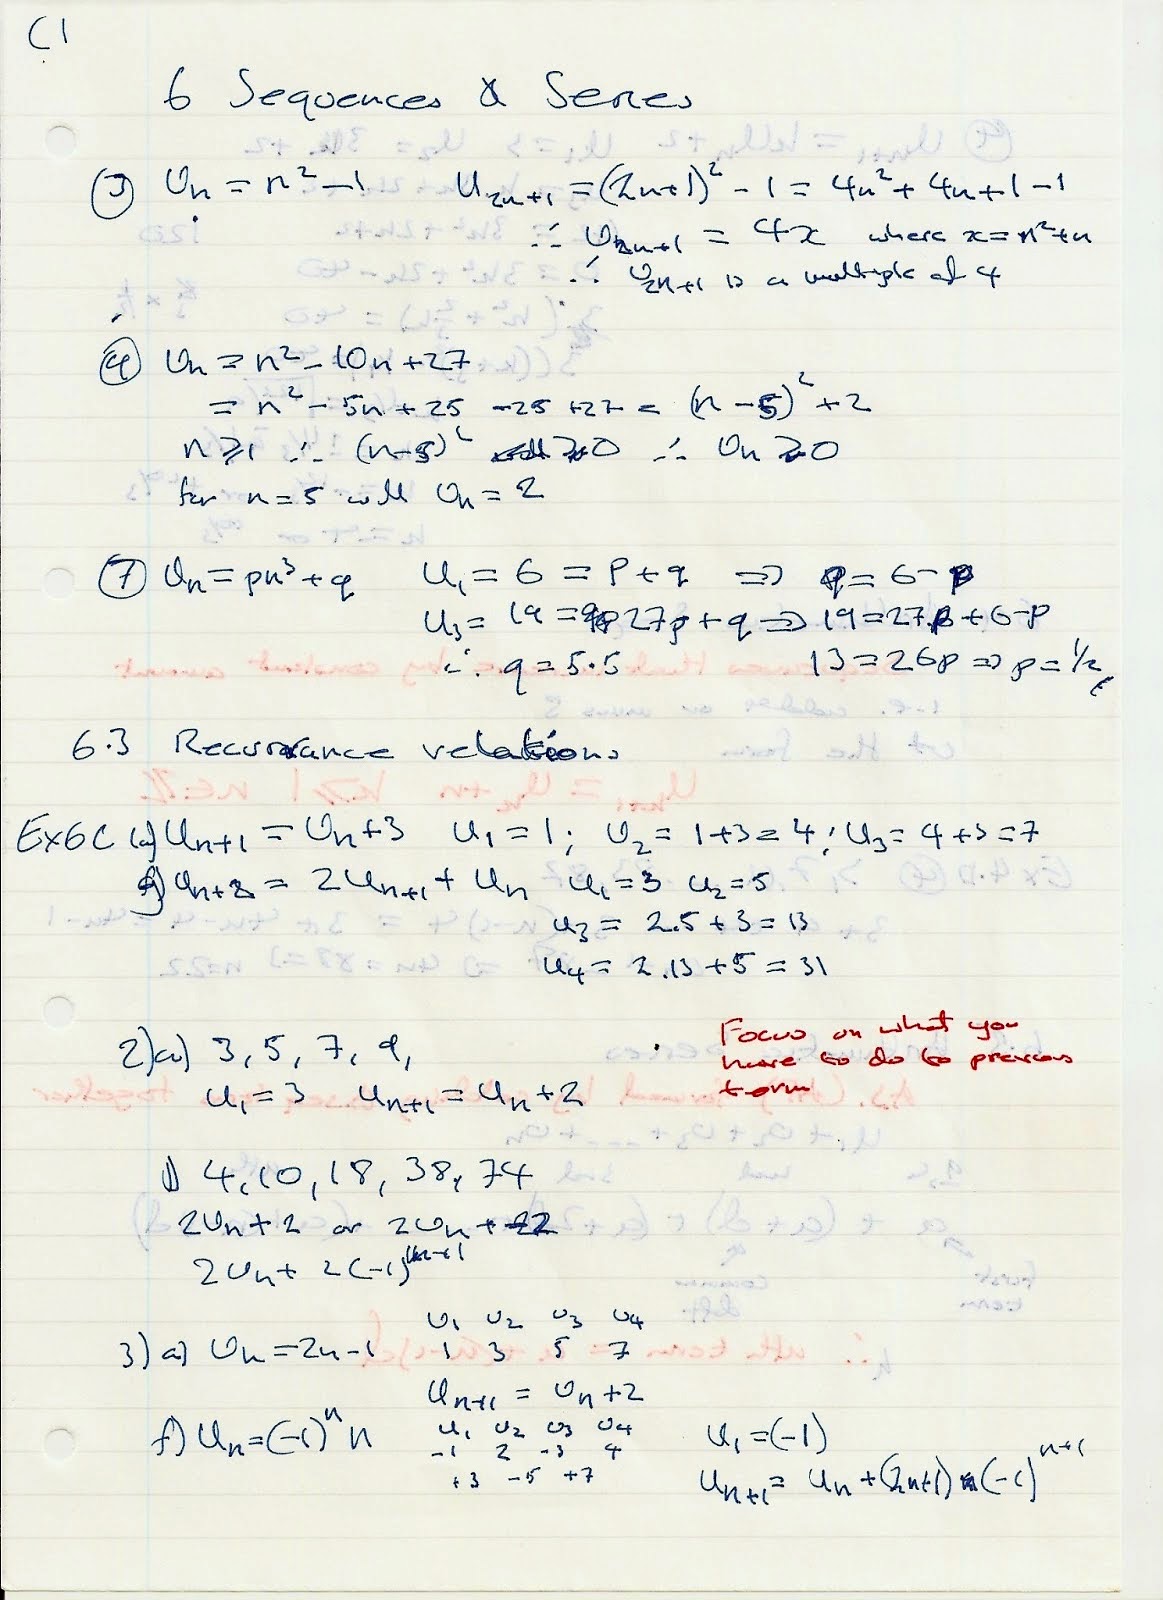 C1
6 Sequences & Series
③ Un = n² - 1 U2n+1 = (2n+1)² - 1 = 4n² + 4n + 1 - 1
∴ U2n+1 = 4x where x = n²+n
∴ U2n+1 is a multiple of 4
④ Un = n² - 10n + 27
= n² - 5n + 25 - 25 + 27 = (n - 5)² + 2
n ≥ 1 ∴ (n-5)² ≥ 0 ∴ Un ≥ 0
for n = 5 Un = 2
⑦ Un = pn³ + q U1 = 6 = p + q ⇒ q = 6 - p
U3 = 19 = 27p + q ⇒ 19 = 27p + 6 - p
∴ q = 5.5 13 = 26p ⇒ p = 1/2
6.3 Recurrance relations
Ex6C (a) Un+1 = Un + 3 U1 = 1; U2 = 1+3 = 4; U3 = 4+3 = 7
g) Un+2 = 2Un+1 + Un U1 = 3 U2 = 5
U3 = 2.5 + 3 = 13
U4 = 2.13 + 5 = 31
2)a) 3, 5, 7, 9,
U1 = 3 Un+1 = Un + 2
Focus on what you
have to do to previous
term
4, 10, 18, 38, 74
2Un + 2 or 2Un + -2
2Un + 2(-1)ⁿ⁺¹
U1 U2 U3 U4
3) a) Un = 2n-1 1 3 5 7
Un+1 = Un + 2
f) Un = (-1)ⁿ n U1 U2 U3 U4 U1 = (-1)
-1 2 -3 4
+3 -5 +7 Un+1 = Un + (2n+1)(-1)ⁿ⁺¹